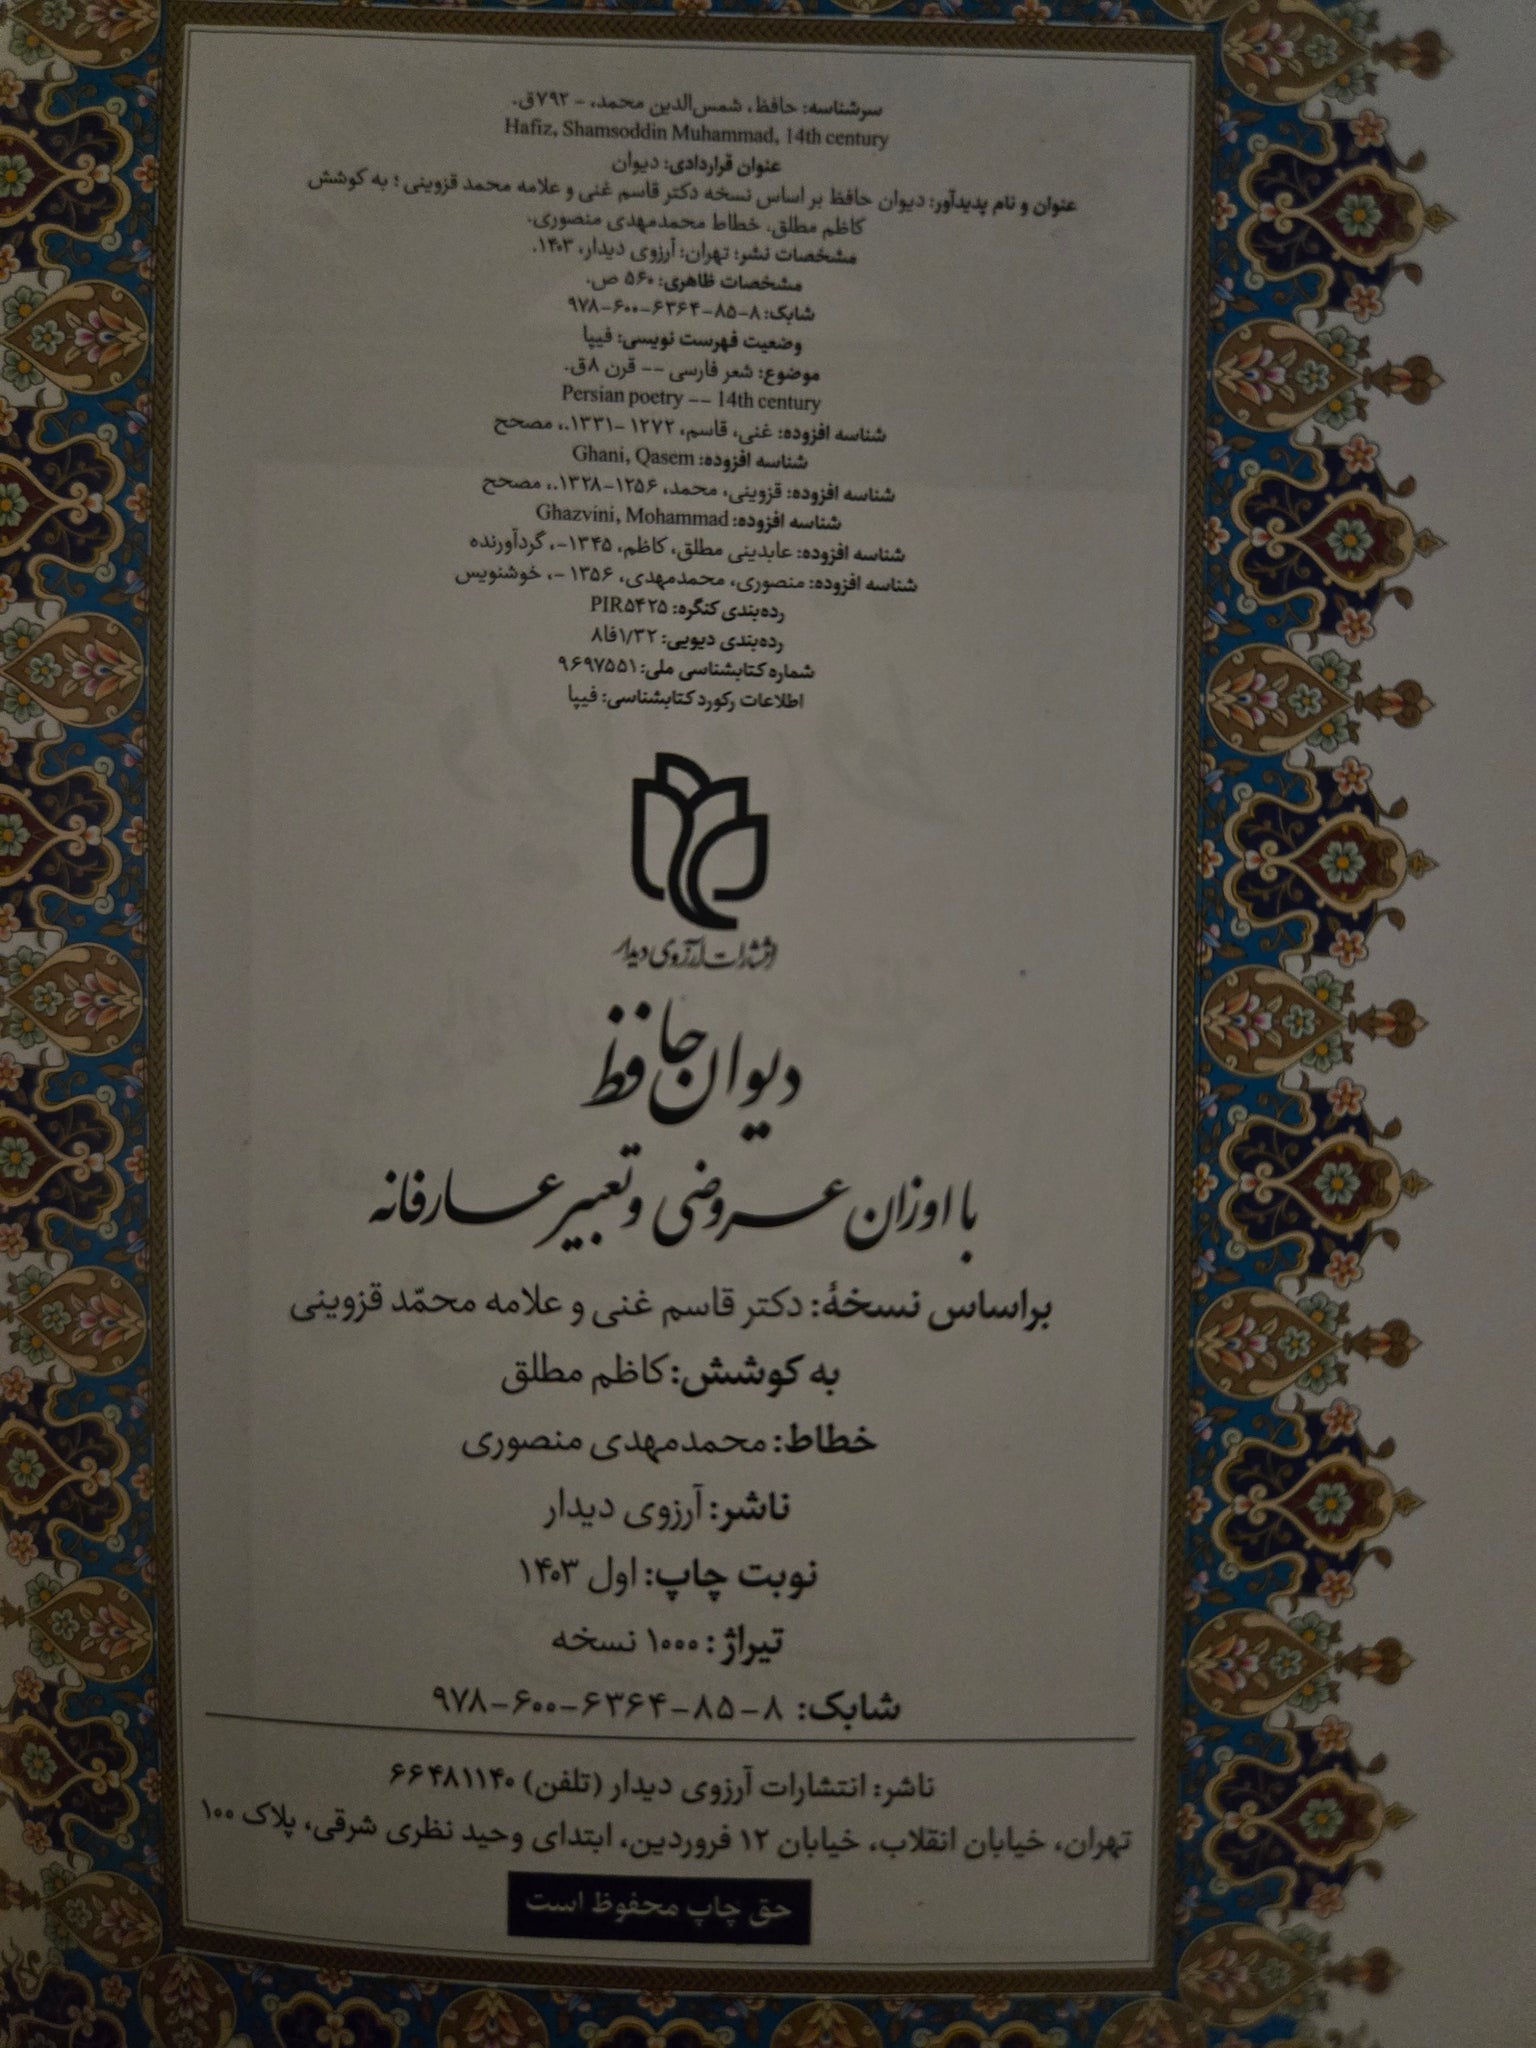 سرشناسه: حافظ، شمس‌الدین محمد، - ۷۹۲ق.
Hafiz, Shamsoddin Muhammad, 14th century
عنوان قراردادی: دیوان
عنوان و نام پدیدآور: دیوان حافظ بر اساس نسخه دکتر قاسم غنی و علامه محمد قزوینی ؛ به کوشش
کاظم مطلق. خطاط محمدمهدی منصوری.
مشخصات نشر: تهران: آرزوی دیدار، ۱۴۰۳.
مشخصات ظاهری: ۵۶۰ ص.
شابک: ۸-۸۵-۶۳۶۴-۶۰۰-۹۷۸
وضعیت فهرست نویسی: فیپا
موضوع: شعر فارسی -- قرن ۸ق.
Persian poetry -- 14th century
شناسه افزوده: غنی، قاسم، ۱۲۷۲ -۱۳۳۱.، مصحح
شناسه افزوده: Ghani, Qasem
شناسه افزوده: قزوینی، محمد، ۱۲۵۶-۱۳۲۸.، مصحح
شناسه افزوده: Ghazvini, Mohammad
شناسه افزوده: عابدینی مطلق، کاظم، ۱۳۴۵-، گردآورنده
شناسه افزوده: منصوری، محمدمهدی، ۱۳۵۶ -، خوشنویس
رده‌بندی کنگره: PIR۵۴۲۵
رده‌بندی دیویی: ۱/۳۲فا۸
شماره کتابشناسی ملی: ۹۶۹۷۵۵۱
اطلاعات رکورد کتابشناسی: فیپا
انتشارات آرزوی دیدار
دیوان حافظ
با اوزان عروضی و تعبیر عارفانه
براساس نسخهٔ: دکتر قاسم غنی و علامه محمّد قزوینی
به کوشش: کاظم مطلق
خطاط: محمدمهدی منصوری
ناشر: آرزوی دیدار
نوبت چاپ: اول ۱۴۰۳
تیراژ: ۱۰۰۰ نسخه
شابک: ۸-۸۵-۶۳۶۴-۶۰۰-۹۷۸
ناشر: انتشارات آرزوی دیدار (تلفن) ۶۶۴۸۱۱۴۰
تهران، خیابان انقلاب، خیابان ۱۲ فروردین، ابتدای وحید نظری شرقی، پلاک ۱۰۰
حق چاپ محفوظ است